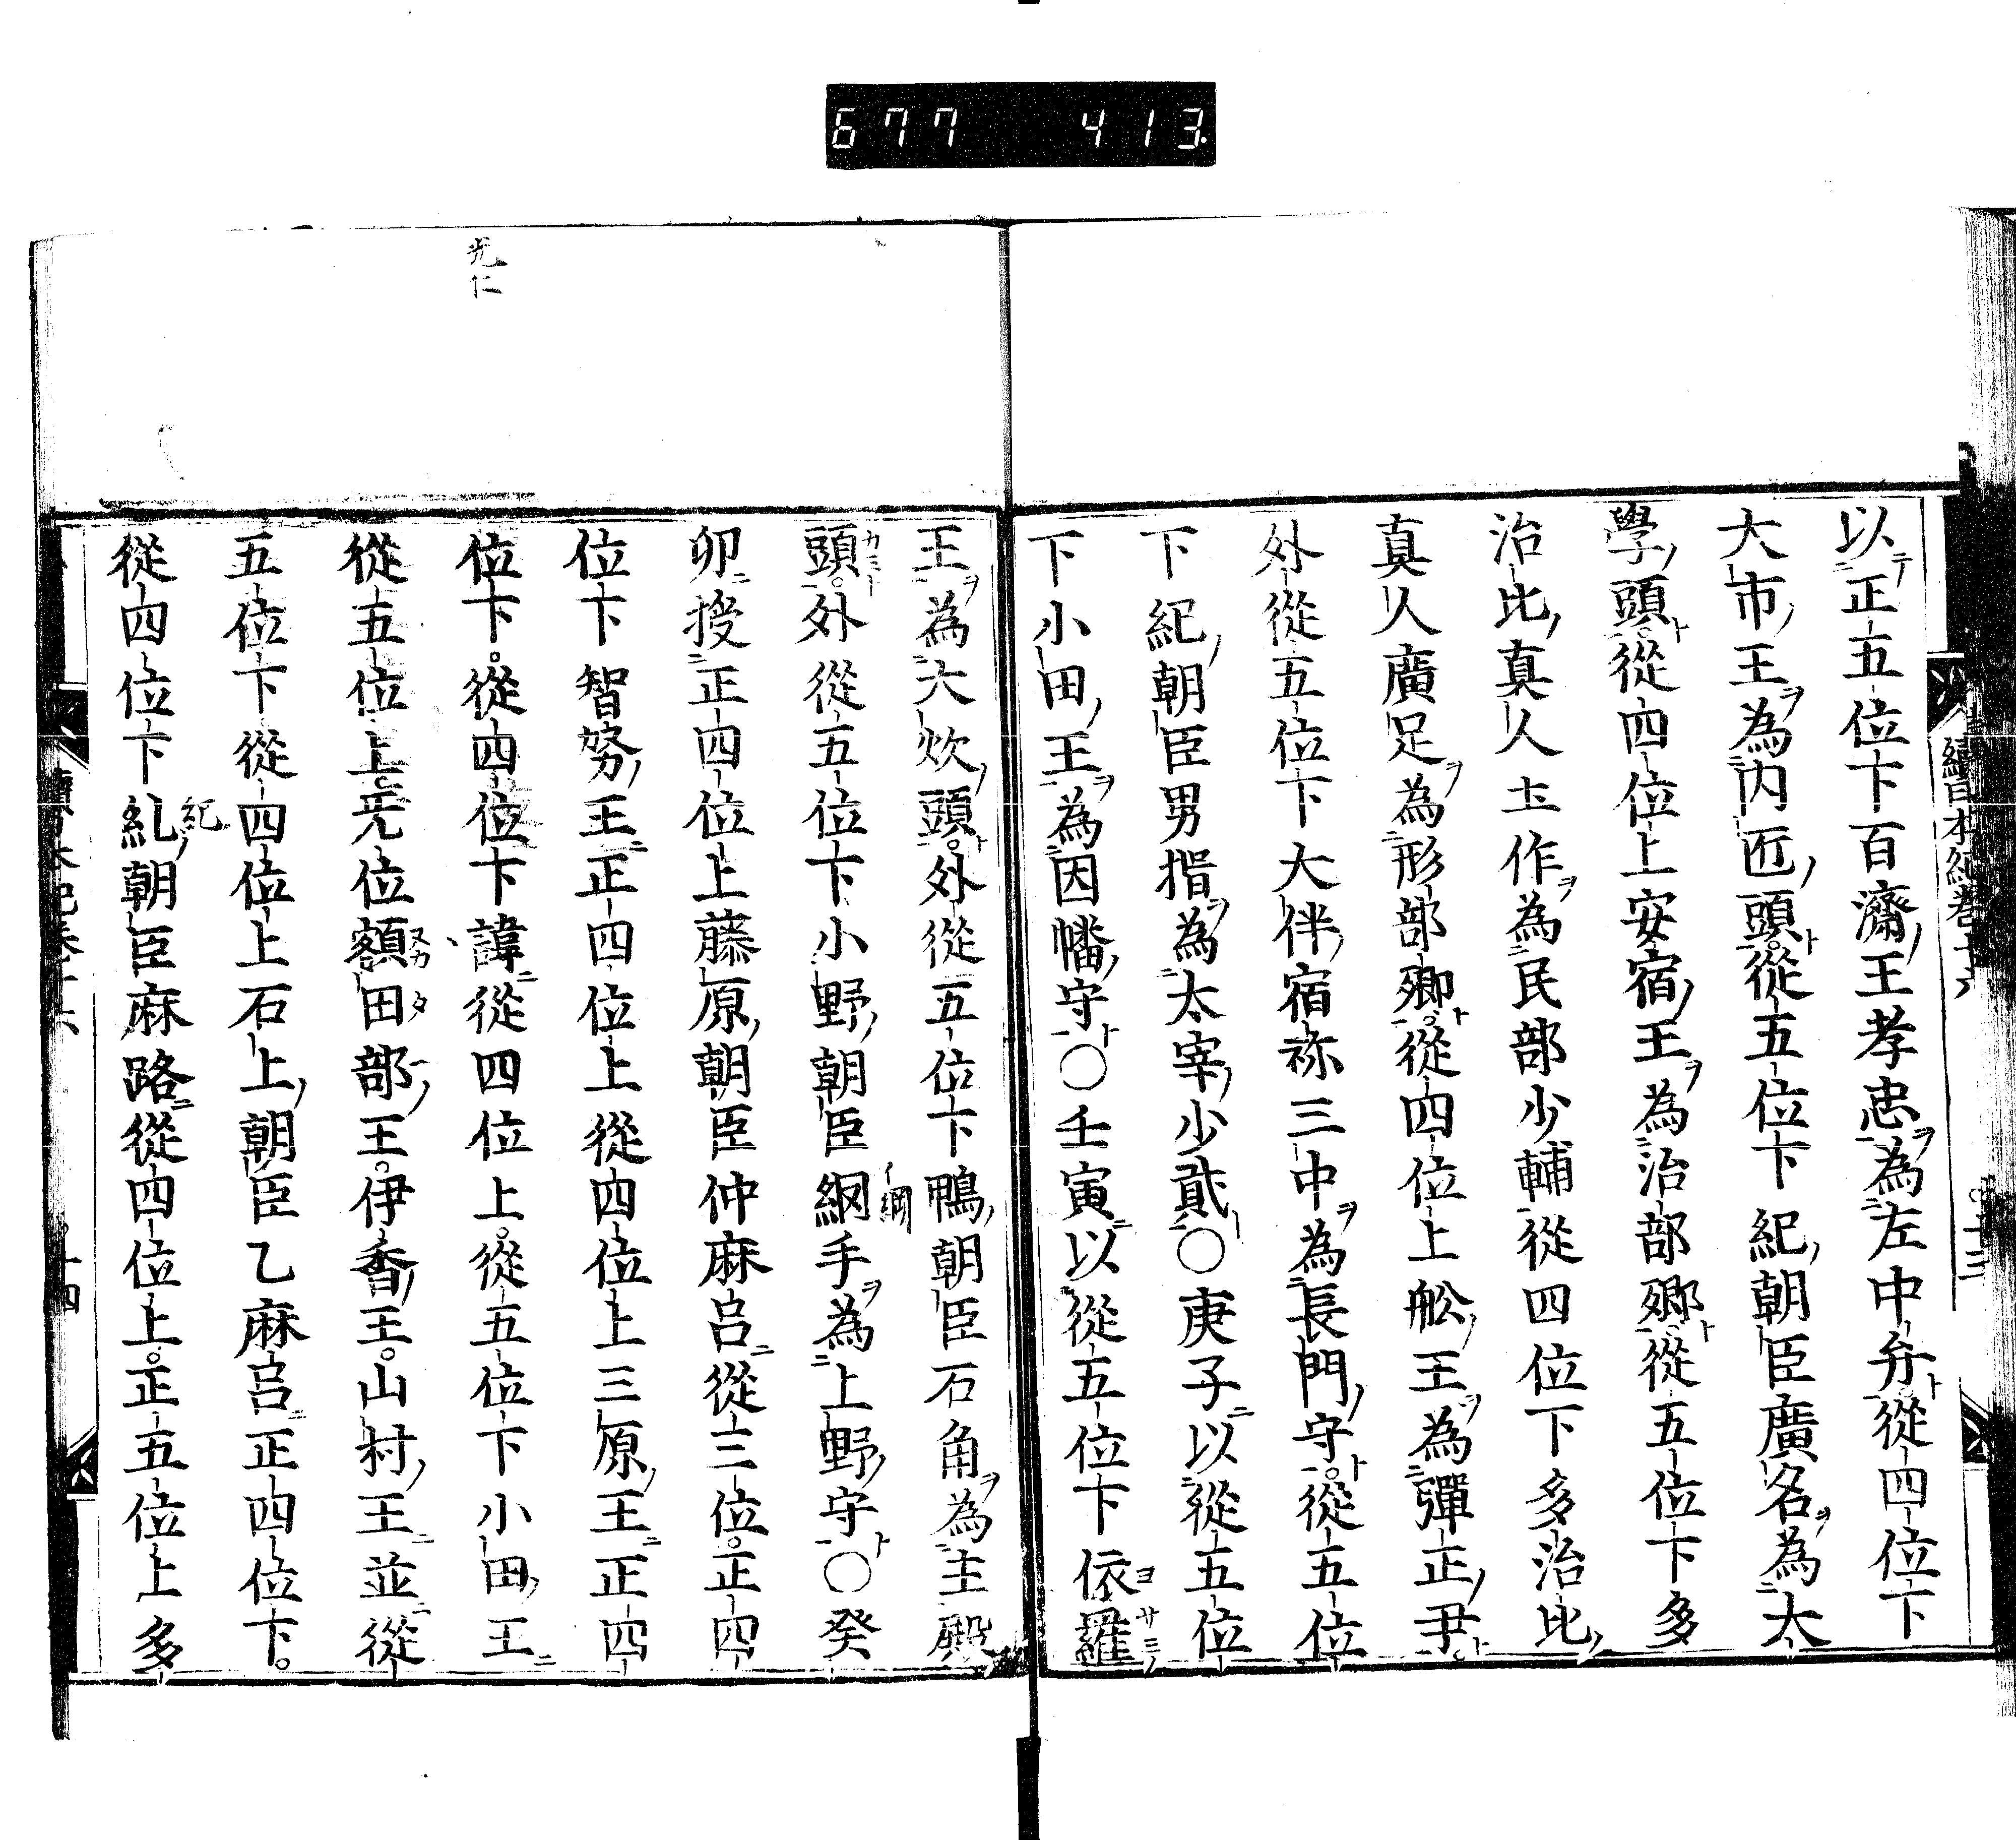 677 413
續日本紀卷十六
十三
以正五位下百濟王孝忠為左中弁。從四位下
大市王為内匠頭。從五位下紀朝臣廣名為大
學頭。從四位上安宿王為治部卿。從五位下多
治比真人土作為民部少輔從四位下多治比
真人廣足為形部卿。從四位上舩王為彈正尹。
外從五位下大伴宿祢三中為長門守。從五位
下紀朝臣男楫為太宰少貳〇庚子以從五位
下小田王為因幡守〇壬寅以從五位下依羅
王為大炊頭。外從五位下鴨朝臣石角為主殿
頭。外從五位下小野朝臣綱手為上野守〇癸
卯授正四位上藤原朝臣仲麻呂從三位。正四
位下智努王正四位上從四位上三原王正四
位下。從四位下諱從四位上。從五位下小田王
從五位上。无位額田部王。伊香王。山村王並從
五位下從四位上石上朝臣乙麻呂正四位下。
從四位下糺朝臣麻路從四位上。正五位上多
紀
イ綱
光仁
十四